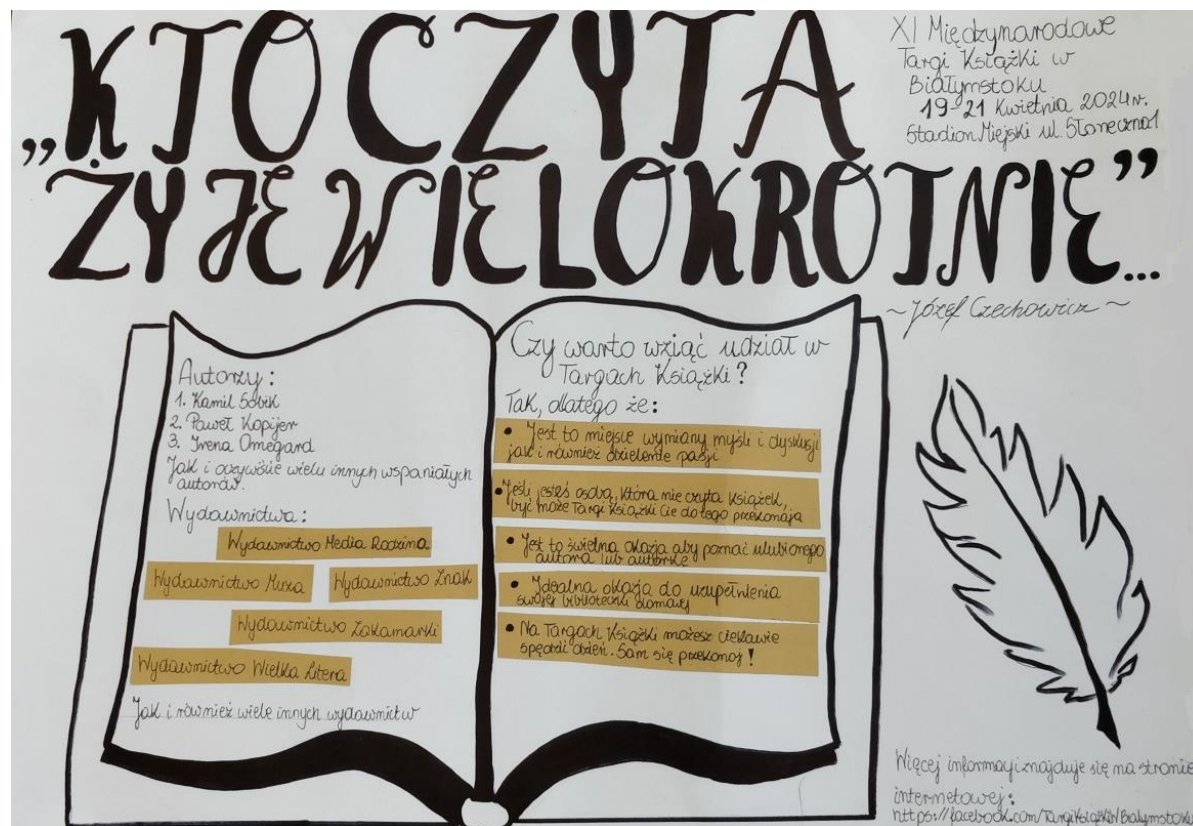 „KTO CZYTA
ŻYJE WIELOKROTNIE”...
~Józef Czechowicz~
XI Międzynarodowe
Targi Książki w
Białymstoku
19-21 Kwietnia 2024r.
Stadion Miejski ul. Słoneczna1
Autorzy:
1. Kamil Sobik
2. Paweł Kopijer
3. Irena Omegard
Jak i oczywiście wielu innych wspaniałych
autorów.
Wydawnictwa:
Wydawnictwo Media Rodzina
Wydawnictwo Muza
Wydawnictwo Znak
Wydawnictwo Zakamarki
Wydawnictwo Wielka Litera
Jak i również wiele innych wydawnictw
Czy warto wziąć udział w
Targach Książki?
Tak, dlatego że:
• Jest to miejsce wymiany myśli i dyskusji
jak i również dzielenie pasji
• Jeśli jesteś osobą, która nie czyta książek,
być może Targi Książki Cie do tego przekonają
• Jest to świetna okazja aby poznać ulubionego
autora lub autorkę
• Idealna okazja do uzupełnienia
swojej biblioteczki domowej
• Na Targach Książki możesz ciekawie
spędzić dzień. Sam się przekonaj!
Więcej informacji znajduje się na stronie
internetowej:
https://facebook.com/TargiKsiążkiWBialymstoku